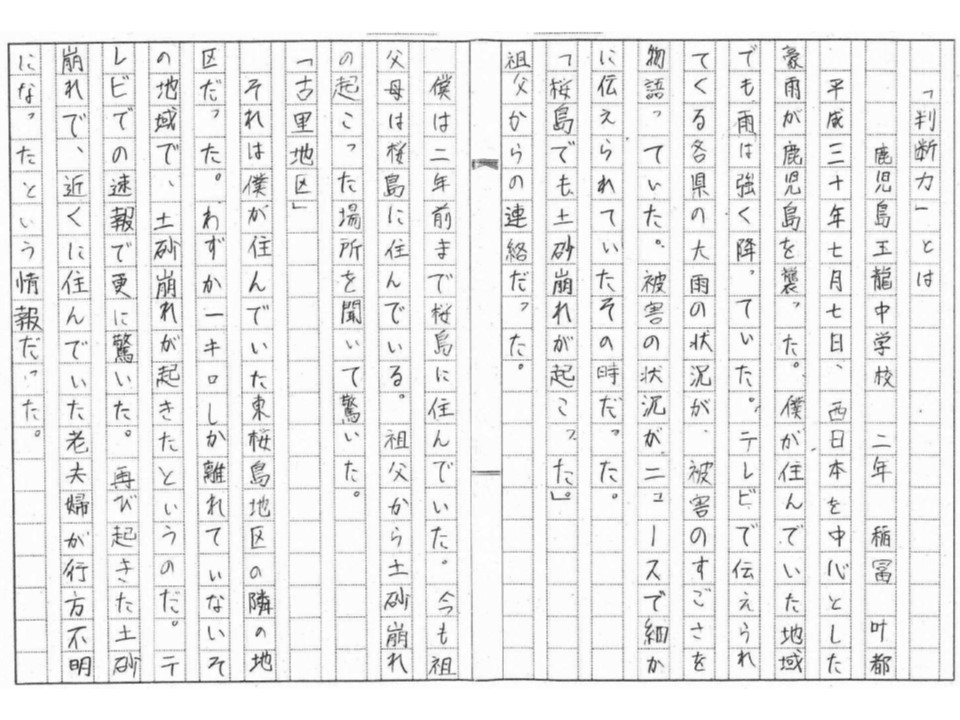 「判断力」とは
鹿児島玉龍中学校 二年 稲冨 叶都
平成三十年七月七日、西日本を中心とした
豪雨が鹿児島を襲った。僕が住んでいた地域
でも雨は強く降っていた。テレビで伝えられ
てくる各県の大雨の状況が、被害のすごさを
物語っていた。被害の状況がニュースで細か
に伝えられていたその時だった。
「桜島でも土砂崩れが起こった」。
祖父からの連絡だった。
僕は二年前まで桜島に住んでいた。今も祖
父母は桜島に住んでいる。祖父から土砂崩れ
の起こった場所を聞いて驚いた。
「古里地区」
それは僕が住んでいた東桜島地区の隣の地
区だった。わずか一キロしか離れていないそ
の地域で、土砂崩れが起きたというのだ。テ
レビでの速報で更に驚いた。再び起きた土砂
崩れで、近くに住んでいた老夫婦が行方不明
になったという情報だった。